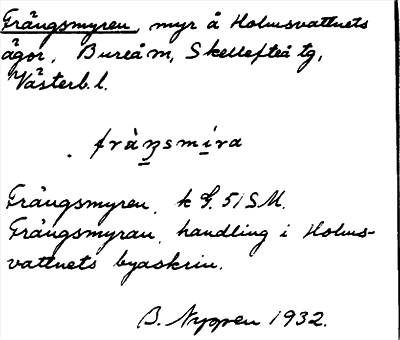 Frängsmyren, myr å Holmsvattnets
ägor, Bureå sn, Skellefteå tg,
Västerb. l.
fràŋsmira
Frängsmyren, k G. 51 SM.
Frängsmyran, handling i Holms-
vattnets byaskrin.
B. Nyggen 1932.